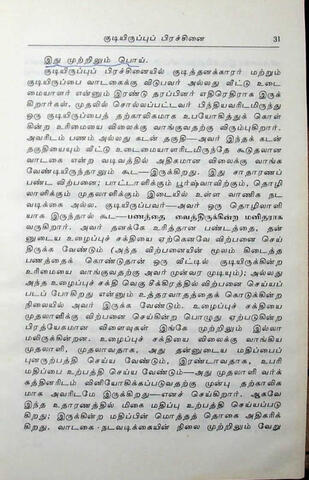 குடியிருப்புப் பிரச்சினை 31
இது முற்றிலும் பொய்.
குடியிருப்புப் பிரச்சினையில் குடித்தனக்காரர் மற்றும்
குடியிருப்பை வாடகைக்கு விடுபவர் அல்லது வீட்டு உடை
மையாளர் என்னும் இரண்டு தரப்பினர் எதிரெதிராக இருக்
கிறார்கள். முதலில் சொல்லப்பட்டவர் பிந்தியவரிடமிருந்து
ஒரு குடியிருப்பைத் தற்காலிகமாக உபயோகித்துக் கொள்
கின்ற உரிமையை விலைக்கு வாங்குவதற்கு விரும்புகிறார்.
அவரிடம் பணம் அல்லது கடன் தகுதி—அவர் இந்தக் கடன்
தகுதியையும் வீட்டு உடைமையாளரிடமிருந்தே கூடுதலான
வாடகை என்ற வடிவத்தில் அதிகமான விலைக்கு வாங்க
வேண்டியிருந்தாலும் கூட—இருக்கிறது. இது சாதாரணப்
பண்ட விற்பனை; பாட்டாளிக்கும் பூர்ஷ்வாவிற்கும், தொழி
லாளிக்கும் முதலாளிக்கும் இடையில் உள்ள வாணிக நட
வடிக்கை அல்ல. குடியிருப்பவர்—அவர் ஒரு தொழிலாளி
யாக இருந்தால் கூட—பணத்தை வைத்திருக்கின்ற மனிதராக
வருகிறார். அவர் தனக்கே உரித்தான பண்டத்தை, தன்
னுடைய உழைப்புச் சக்தியை ஏற்கெனவே விற்பனை செய்
திருக்க வேண்டும் (அந்த விற்பனையின் மூலம் கிடைத்த
பணத்தைக் கொண்டுதான் ஒரு வீட்டில் குடியிருக்கின்ற
உரிமையை வாங்குவதற்கு அவர் முன்வர முடியும்); அல்லது
அந்த உழைப்புச் சக்தி வெகு சீக்கிரத்தில் விற்பனை செய்யப்
படப் போகிறது என்னும் உத்தரவாதத்தைக் கொடுக்கின்ற
நிலையில் அவர் இருக்க வேண்டும். உழைப்புச் சக்தியை
முதலாளிக்கு விற்பனை செய்கின்ற பொழுது ஏற்படுகின்ற
பிரத்யேகமான விளைவுகள் இங்கே முற்றிலும் இல்லா
மலிருக்கின்றன. உழைப்புச் சக்தியை விலைக்கு வாங்கிய
முதலாளி, முதலாவதாக, அது தன்னுடைய மதிப்பைப்
புனருற்பத்தி செய்ய வேண்டும், இரண்டாவதாக, உபரி
மதிப்பை உற்பத்தி செய்ய வேண்டும்—அது முதலாளி வர்க்
கத்தினரிடம் வினியோகிக்கப்படுவதற்கு முன்பு தற்காலிக
மாக அவரிடமே இருக்கிறது—எனச் செய்கிறார். ஆகவே
இந்த உதாரணத்தில் மிகை மதிப்பு உற்பத்தி செய்யப்படு
கிறது; இருக்கின்ற மதிப்பின் மொத்தத் தொகை அதிகரிக்
கிறது. வாடகை நடவடிக்கையின் நிலை முற்றிலும் வேறு